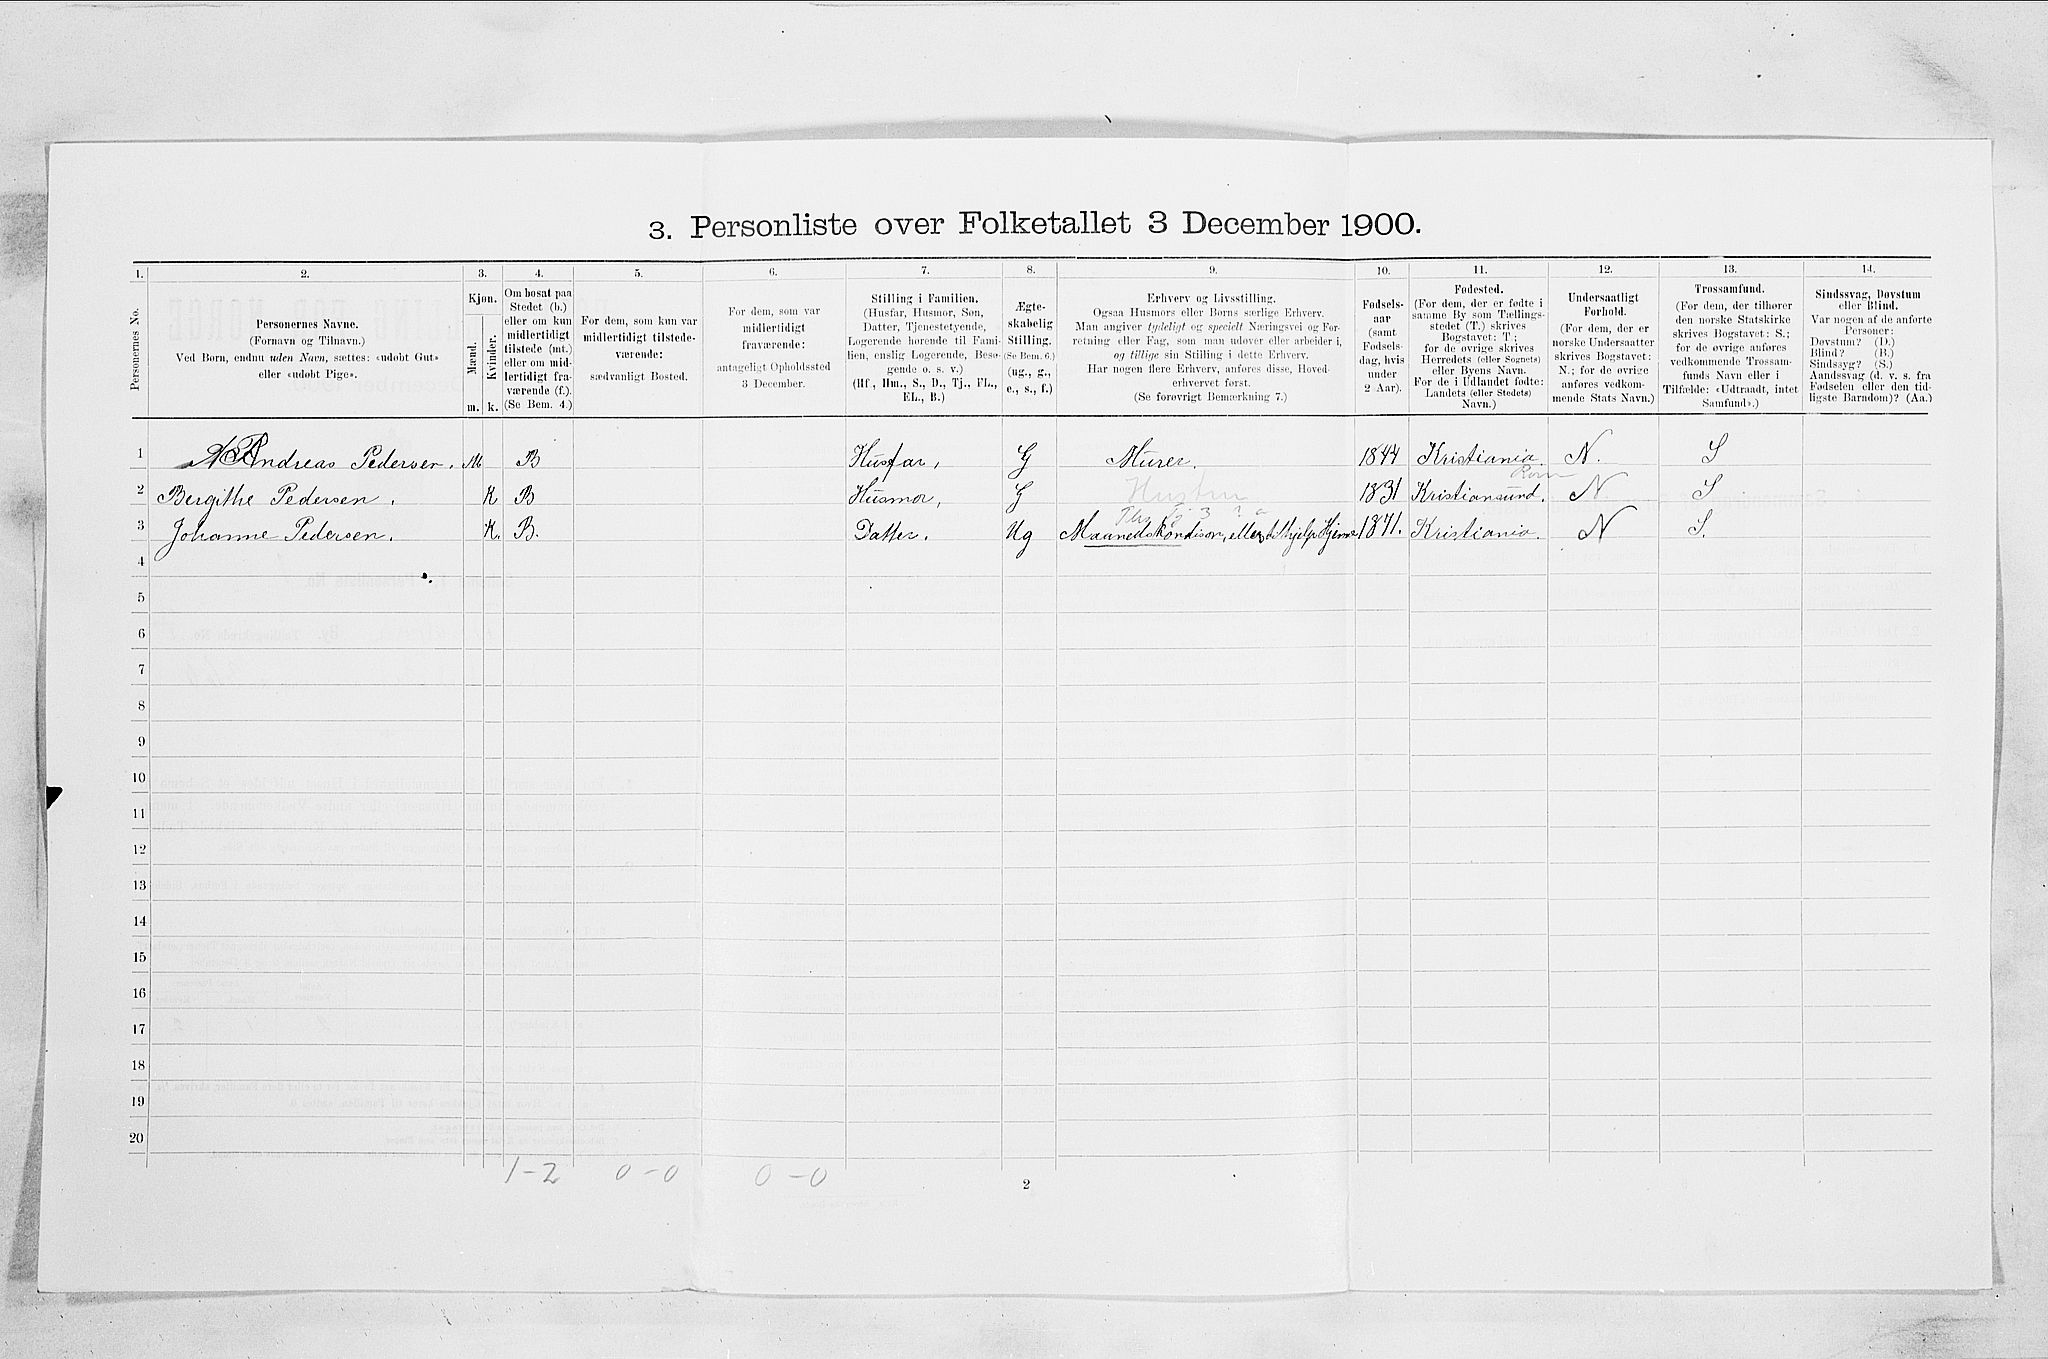 3. Personliste over Folketallet 3 December 1900.
1. 2. 3. 4. 5. 6. 7. 8. 9. 10. 11. 12. 13. 14.
Personernes No.
Personernes Navne.
(Fornavn og Tilnavn.)
Ved Børn, endnu uden Navn, sættes: «udøbt Gut»
eller «udøbt Pige».
Kjøn.
Mænd.
Kvinder.
m. k.
Om bosat paa
Stedet (b.)
eller om kun
midlertidigt
tilstede (mt.)
eller om mid-
lertidigt fra-
værende (f.).
(Se Bem. 4.)
For dem, som kun var
midlertidigt tilstede-
værende:
sædvanligt Bosted.
For dem, som var
midlertidigt
fraværende:
antageligt Opholdssted
3 December.
Stilling i Familien.
(Husfar, Husmor, Søn,
Datter, Tjenestetyende,
Logerende hørende til Fami-
lien, enslig Logerende, Besø-
gende o. s. v.)
(Hf., Hm., S., D., Tj., FL.,
EL., B.)
Ægte-
skabelig
Stilling.
(Se Bem. 6.)
(ug., g.,
e., s., f.)
Erhverv og Livsstilling.
Ogsaa Husmors eller Børns særlige Erhverv.
Man angiver tydeligt og specielt Næringsvei og For-
retning eller Fag, som man udøver eller arbeider i,
og tillige sin Stilling i dette Erhverv.
Har nogen flere Erhverv, anføres disse, Hoved-
erhvervet først.
(Se forøvrigt Bemærkning 7.)
Fødsels-
aar
(samt
Fødsels-
dag, hvis
under
2 Aar).
Fødested.
(For dem, der er fødte i
samme By som Tællings-
stedet (T.) skrives
Bogstavet: T;
for de øvrige skrives
Herredets (eller Sognets)
eller Byens Navn.
For de i Udlandet fødte:
Landets (eller Stedets)
Navn.)
Undersaatligt
Forhold.
(For dem, der er
norske Undersaatter
skrives Bogstavet:
N.; for de øvrige
anføres vedkom-
mende Stats Navn.)
Trossamfund.
(For dem, der tilhører
den norske Statskirke
skrives Bogstavet: S.;
for de øvrige anføres
vedkommende Trossam-
funds Navn eller i
Tilfælde: «Udtraadt, intet
Samfund».)
Sindssvag, Døvstum
eller Blind.
Var nogen af de anførte
Personer:
Døvstum? (D.)
Blind? (B.)
Sindssyg? (S.)
Aandssvag (d. v. s. fra
Fødselen eller den tid-
ligste Barndom)? (Aa.)
1 Andreas Pedersen. M B Husfar, G Murer. 1844 Kristiania. N. S
2 Bergithe Pedersen. K B Husmor, G Hustru 1831 Kristiansund. N S
3 Johanne Pedersen. K. B. Datter. Ug 1871. Kristiania. N S.
4
5
6
7
8
9
10
11
12
13
14
15
16
17
18
19
20
1-2 0-0 0-0
2